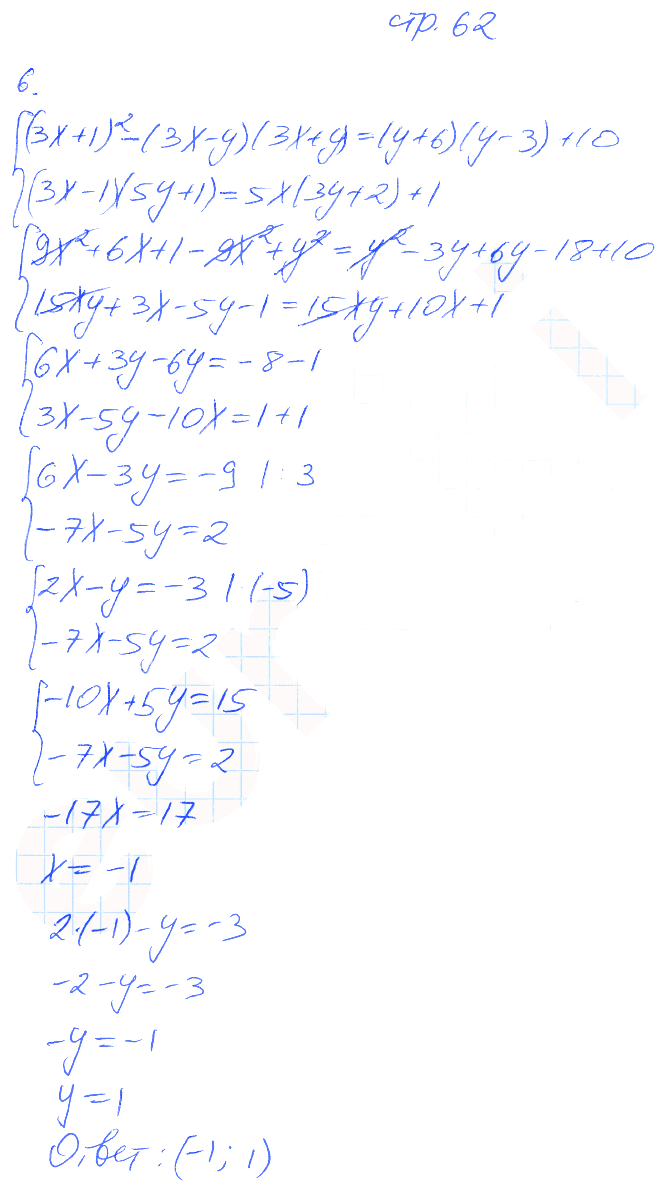 стр. 62
6.
(3x+1)²-(3x-y)(3x+y)=(y+6)(y-3)+10
(3x-1)(5y+1)=5x(3y+2)+1
9x²+6x+1-9x²+y²=y²-3y+6y-18+10
15xy+3x-5y-1=15xy+10x+1
6x+3y-6y=-8-1
3x-5y-10x=1+1
6x-3y=-9 |:3
-7x-5y=2
2x-y=-3 |·(-5)
-7x-5y=2
-10x+5y=15
-7x-5y=2
-17x=17
x=-1
2·(-1)-y=-3
-2-y=-3
-y=-1
y=1
Ответ: (-1; 1)